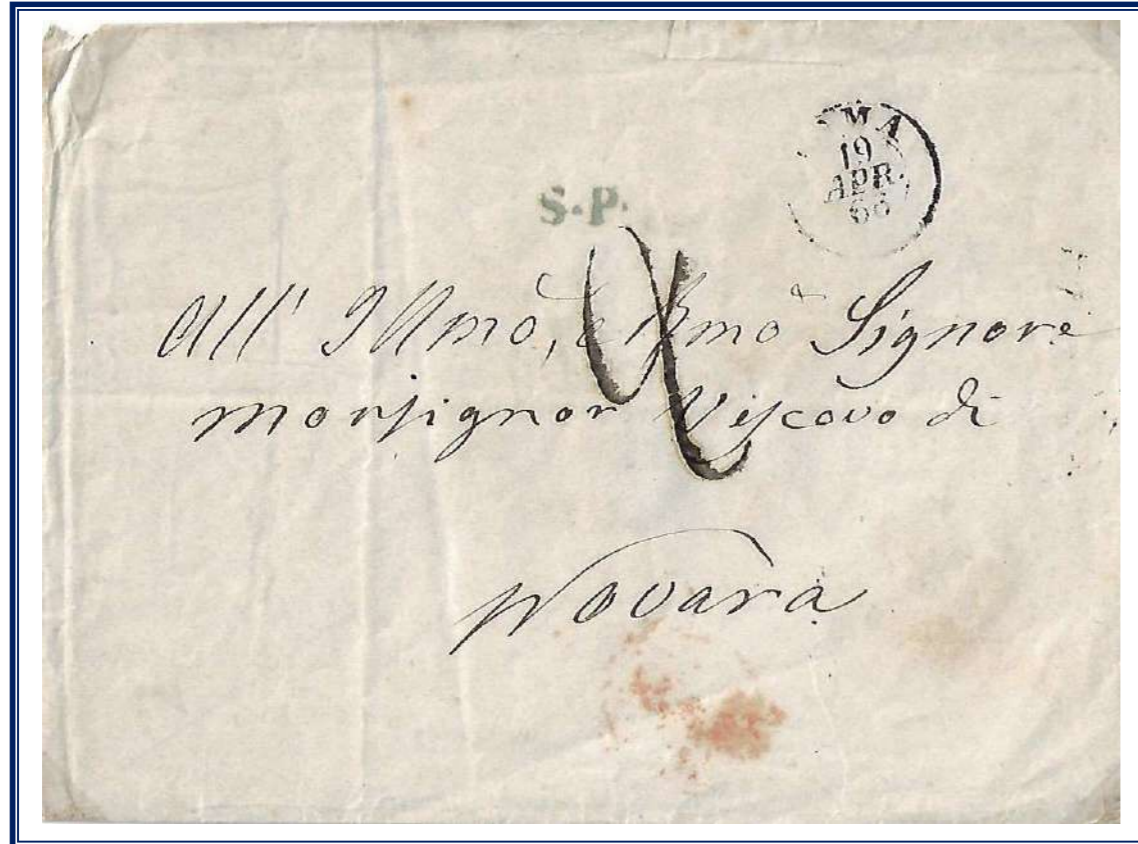 MA
19
APR.
66
S.P.
All' Illmõ, e Rmõ Signore
Monsignor Vescovo di
Novara